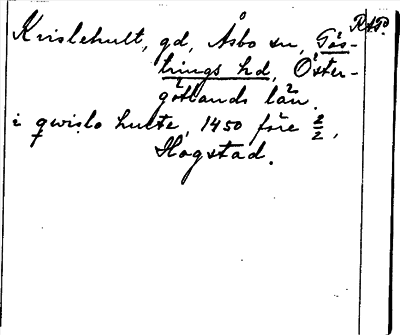 Krislehult, gd, Åsbo sn, Gös-
trings hd, Öster-
götlands län.
i qwislahulte, 1450 före 2/2,
Hogstad.
RAp